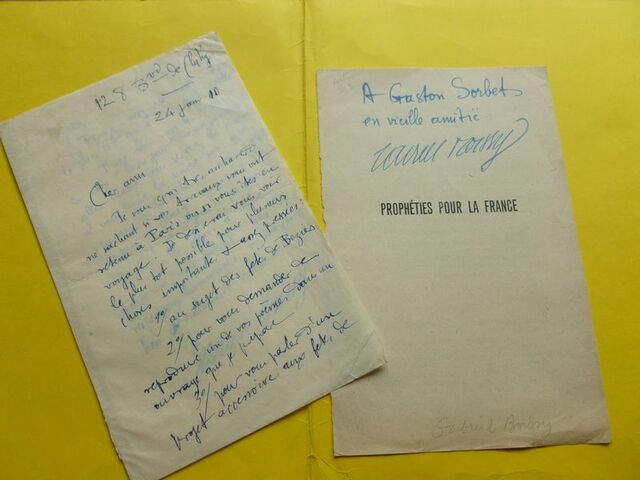 128 Bvd de Clichy
24 juin 10
Cher ami
Je vous écris, au hasard
ne sachant si vos travaux vous ont
retenu à Paris ou si vous êtes en
voyage. Je désirerais vous voir
le plus tôt possible pour plusieurs
choses importantes & assez pressées :
1º/ au sujet des fêtes de Béziers
2º/ pour vous demander de
reproduire un de vos poèmes dans un
ouvrage que je prépare
3º/ pour vous parler d'un
projet accessoire aux fêtes, de
A Gaston Sorbets
en vieille amitié
Gabriel Boissy
PROPHÉTIES POUR LA FRANCE
Gabriel Boissy